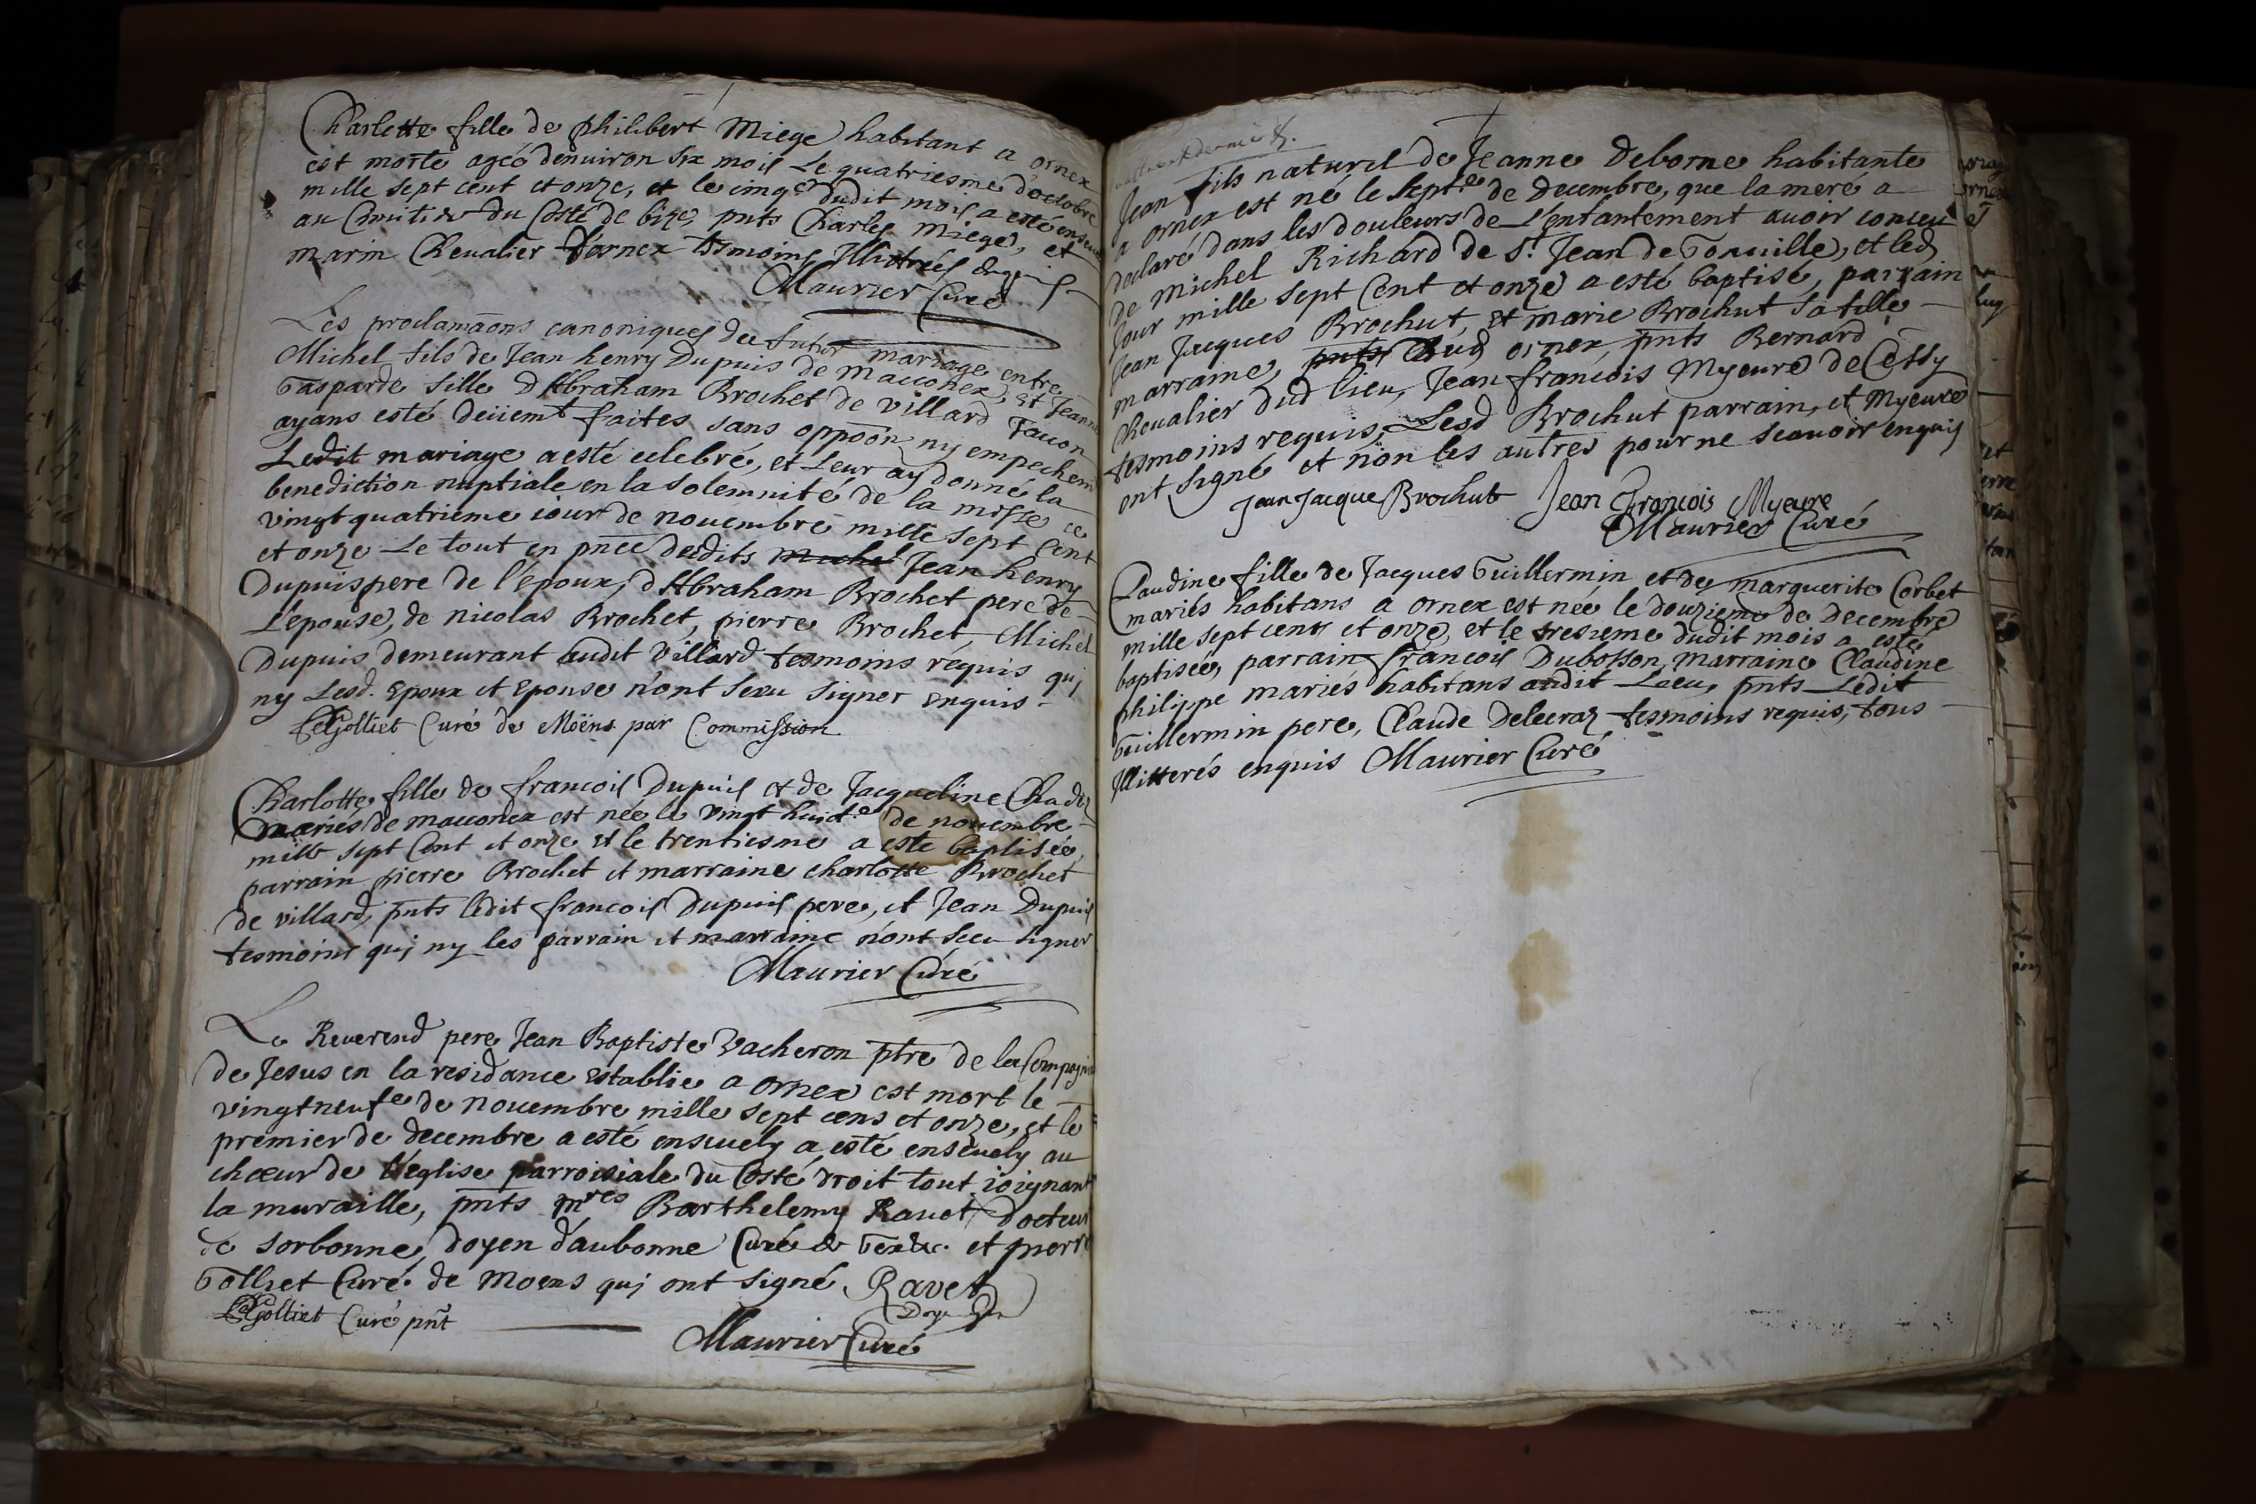 Charlotte fille de philibert Miege habitant a ornex
est morte ageé denuiron six mois Le quatriesme d'octobre
mille sept cent et onze, et le cinqe dudit mois a esté enseuely
au Cimitiere du Costé de bize, pnts Charles Miege, et
marin Cheualier d'ornex tesmoins Illitterés enquis
Maurier Curé
Les proclamaõns canoniques du futur mariage entre
Michel fils de Jean henry Dupuis de maconex, et Jeanne
Gasparde fille d'Abraham Brochet de Villard Tacon
ayans esté deüiemt faites sans oppoõn ny empechemt
Ledit mariage a esté celebré, et Leur ay donné la
benediction nuptiale en la solemnité de la messe ce
vingt quatrieme iour de nouembre mille sept Cent
et onze Le tout en pnce desdits Michel Jean henry
Dupuis pere de l'époux, d'Abraham Brochet pere de
L'epouse, de nicolas Brochet, pierre Brochet, Michel
Dupuis demeurant audit Villard tesmoins réquis qui
ny Lesd. Epoux et Epouse n'ont sceu signer enquis
Golliet Curé de Moëns par Commission
Charlotte fille de francois Dupuis et de Jacqueline
mariés de maconex est née le vingt huicte de nouembre
mille sept Cent et onze et le trentiesme a esté baptisée,
parrain pierre Brochet et marraine charlotte Brochet
de villard, pnts ledit francois Dupuis pere, et Jean Dupuis
tesmoins qui ny les parrain et marraine n'ont sceu signer
Maurier Curé
Le Reuerend pere Jean Baptiste Vacheron ptre de la Compagnie
de Jesus en la residance establie a ornex est mort le
vingtneufe de nouembre mille sept cens et onze, et le
premier de decembre a esté enseuely a esté enseuely au
choeur de l'eglise parroissiale du Costé droit tout ioignant
la muraille, pnts mres Barthelemy Rauet Docteur
de sorbonne, doyen d'aubonne Curé de Gex &c. et pierre
Golliet Curé de Moens qui ont signé Ravet
Golliet Curé pnt
Maurier Curé
Jean fils naturel de Jeanne Deborne habitante
a ornex est né le septe de Decembre, que la meré a
declaré dans les douleurs de L'enfantement auoir conceu
de Michel Richard de St Jean de Gonuille, et led
Jour mille sept Cent et onze a esté baptisé, parrain
Jean Jacques Brochut, et marie Brochut sa fille
marraine, pnts dud ornex, pnts Bernard
Cheualier dud lieu, Jean francois Myeure de Cessy
tesmoins requis, Lesd Brochut parrain, et Myeure
ont signé et non les autres pour ne scauoir enquis
Jean Jacque Brochut Jean François Myeure
Maurier Curé
Claudine fille de Jacques Guillermin et de Marguerite Corbet
mariés habitans a ornex est née le douzieme de Decembre
mille sept cent et onze, et le tresieme dudit mois a esté
baptisée, parrain francois Dubosson, Marraine Claudine
philippe mariés habitans audit Leeu, pnts Ledit
Guillermin pere, Claude Delecraz tesmoins requis, tous
Illitterés enquis Maurier Curé